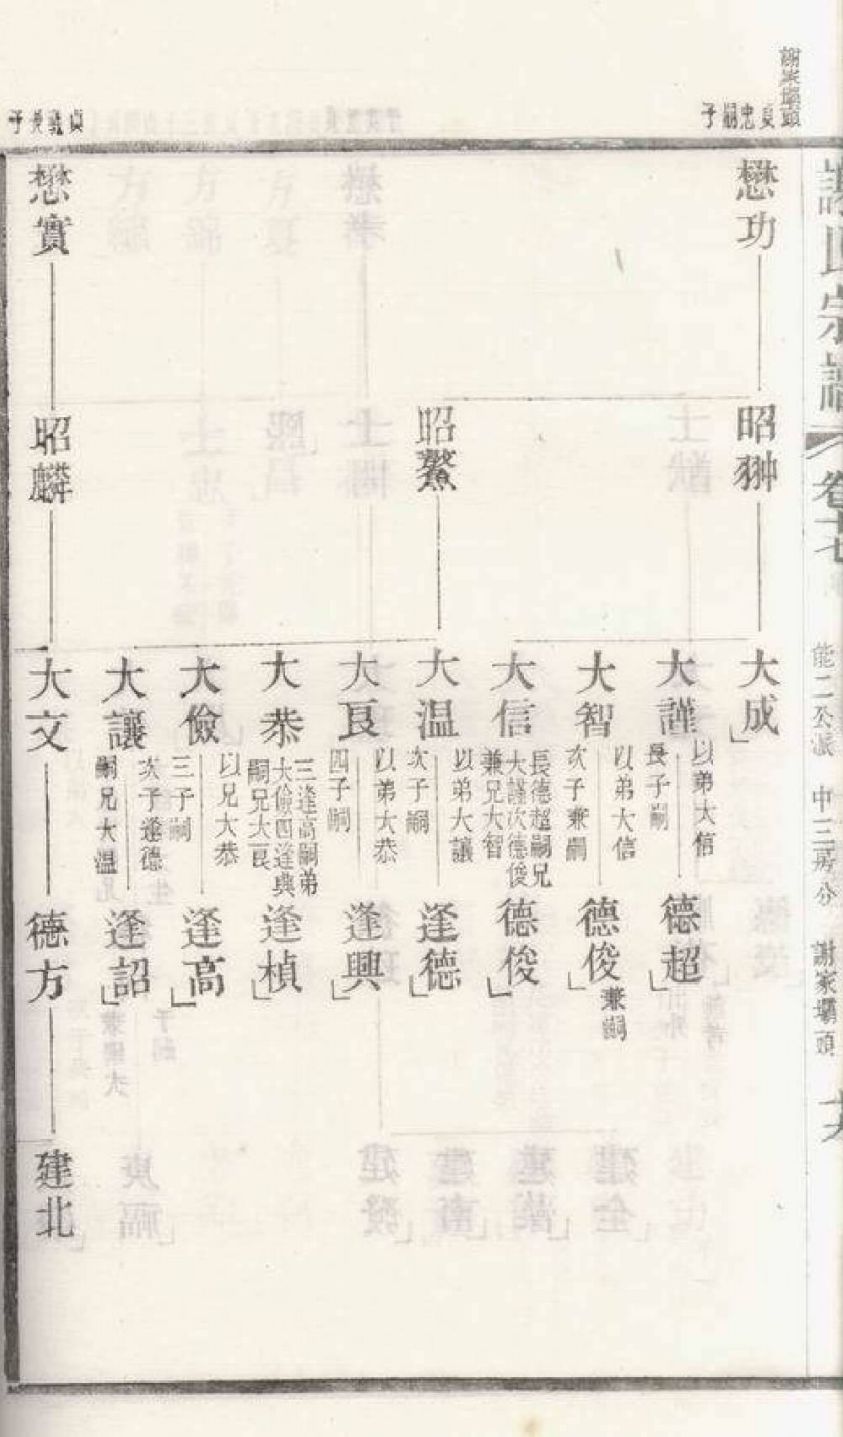 謝家壩頭
謝氏宗譜
卷十七
能二公派 中三房分 謝家壩頭
貞忠嗣子
懋功
昭翀
大成
大謹
以弟大信
長子嗣
德超
大智
以弟大信
次子兼嗣
德俊
兼嗣
大信
長德超嗣兄
大謹次德俊
兼兄大智
德俊
昭鰲
大温
以弟大讓
次子嗣
逢德
大良
以弟大恭
四子嗣
逢興
大恭
三逢高嗣弟
大儉四逢興
嗣兄大良
逢楨
大儉
以兄大恭
三子嗣
逢高
大讓
次子逢德
嗣兄大温
逢詔
貞義長子
懋實
昭麟
大文
德方
建北